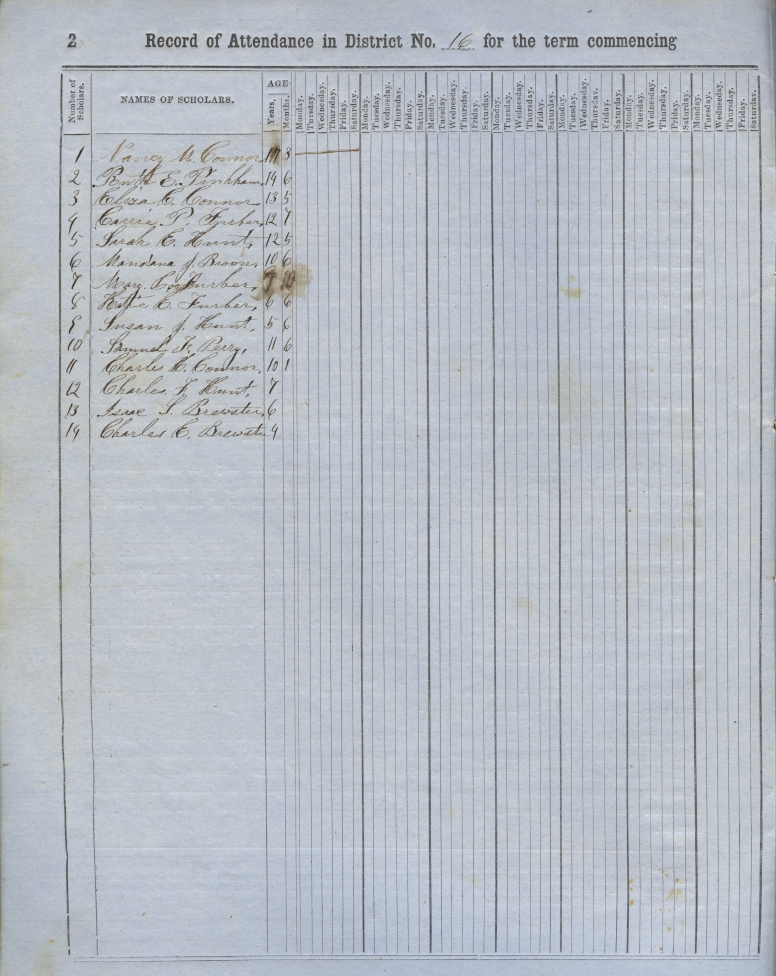 2 Record of Attendance in District No. 16 for the term commencing
Number of Scholars. NAMES OF SCHOLARS. AGE
Years, Months, Monday. Tuesday. Wednesday. Thursday. Friday. Saturday. Monday. Tuesday. Wednesday. Thursday. Friday. Saturday. Monday. Tuesday. Wednesday. Thursday. Friday. Saturday. Monday. Tuesday. Wednesday. Thursday. Friday. Saturday. Monday. Tuesday. Wednesday. Thursday. Friday. Saturday. Monday. Tuesday. Wednesday. Thursday. Friday. Saturday. Monday. Tuesday. Wednesday. Thursday. Friday. Saturday.
1 Nancy M. Connor 3
2 Ruth E. Pinkham, 14 6
3 Eliza C. Connor 13 5
4 Carrie P. Furber, 12 7
5 Sarah E. Hunt, 12 5
6 Mandana J. Brown, 10 6
7 Mary Furber, 10
8 E. Furber, 6 6
9 Susan J. Hunt, 5 6
10 Samuel H. Perry, 11 6
11 Charles H. Connor, 10 1
12 Charles F. Hunt, 7
13 Isaac S. Brewster, 6
14 Charles C. Brewster 4